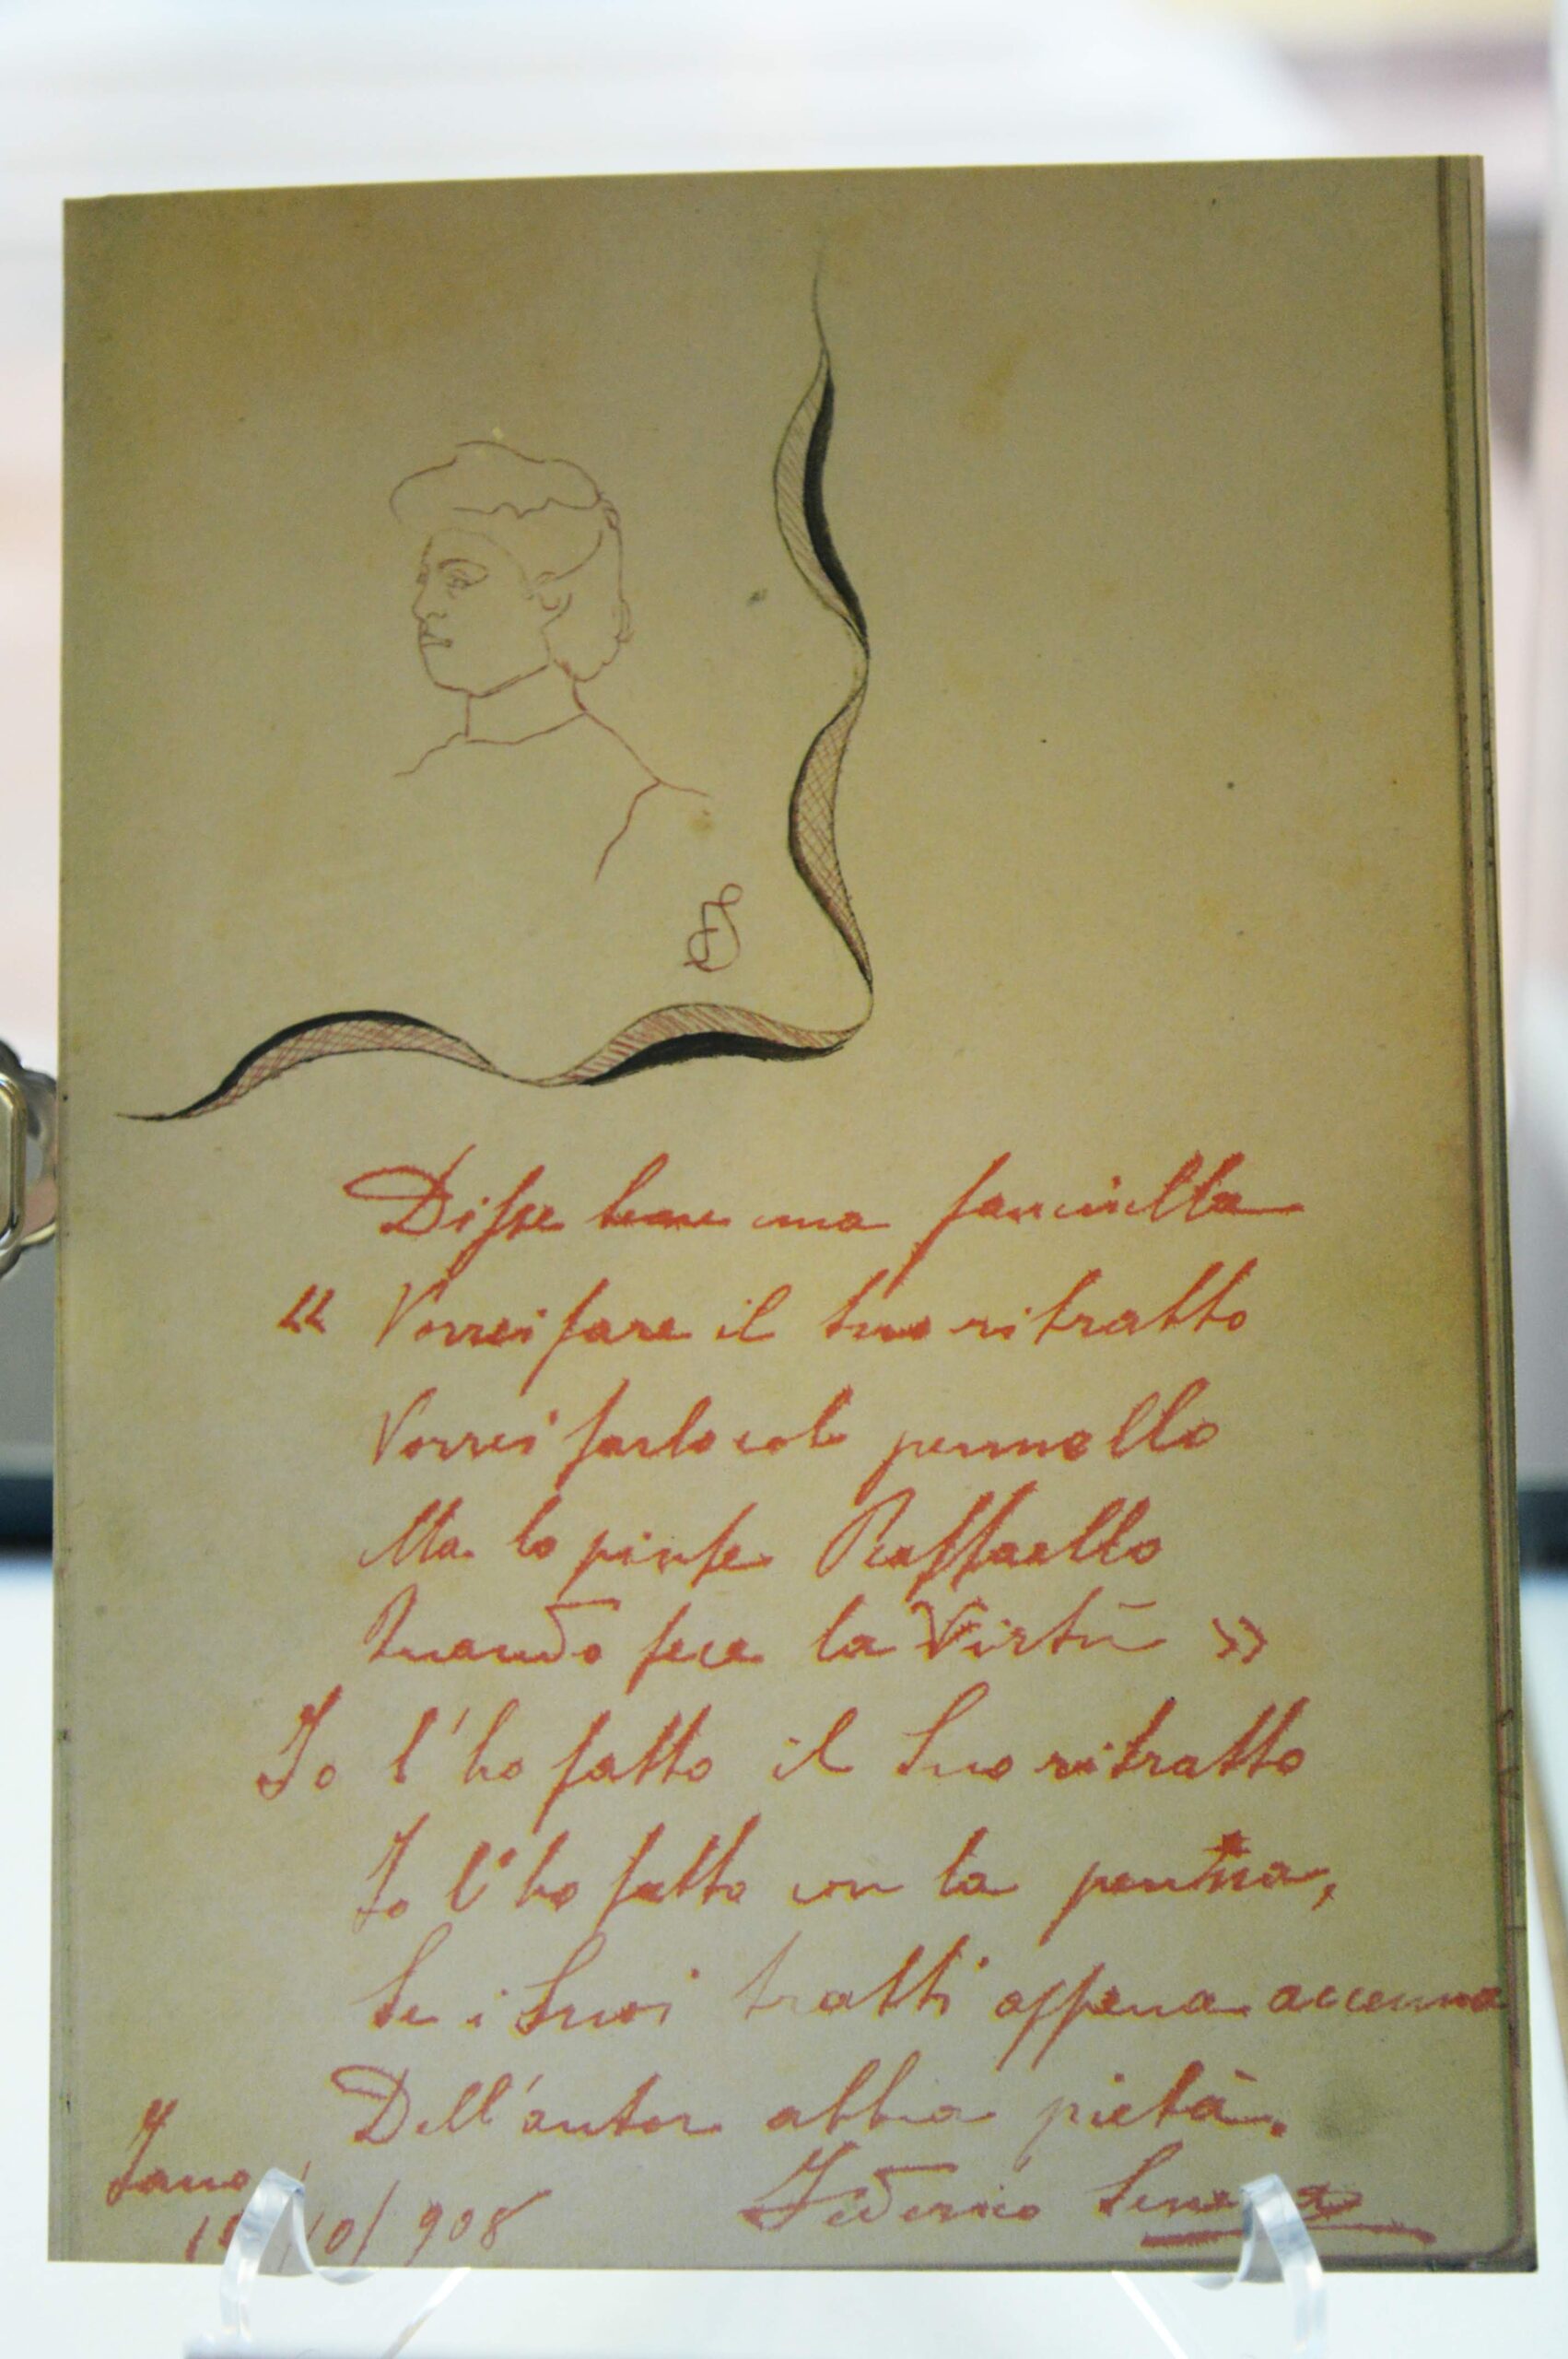 Disse bene una fanciulla
" Vorrei fare il tuo ritratto
Vorrei farlo col pennello
Ma lo pinse Raffaello
Quando fece la Virtù »
Io l'ho fatto il Suo ritratto
Io l'ho fatto con la penna,
Se i Suoi tratti appena accenna
Dell'autor abbia pietà.
Fano
/10/908
Federico Seneca